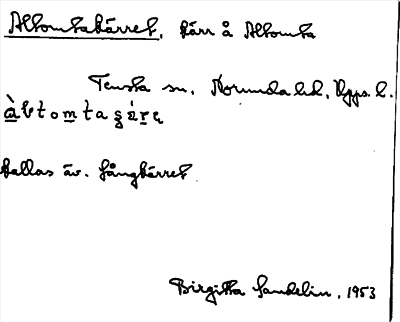 Altomtakärret, kärr å Altomta
Tensta sn, Norunda hd, Upps. l.
àltomtaçæ̀rə
kallas äv. Långkärret.
Birgitta Sandelin, 1953